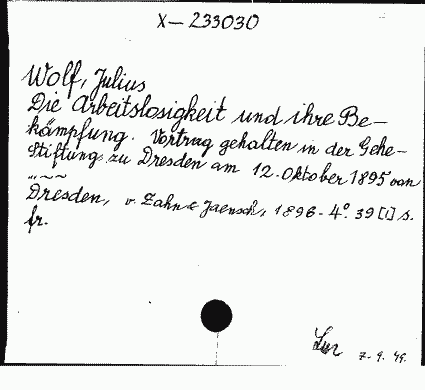 X-233030
Wolf, Julius
Die Arbeitslosigkeit und ihre Be-
kämpfung. Vortrag gehalten in der Gehe-
Stiftung zu Dresden am 12. Oktober 1895 von
... ~~
Dresden, v. Zahn & Jaensch, 1896. 4°. 39 [1] s.
fr.
7. 9. 49.